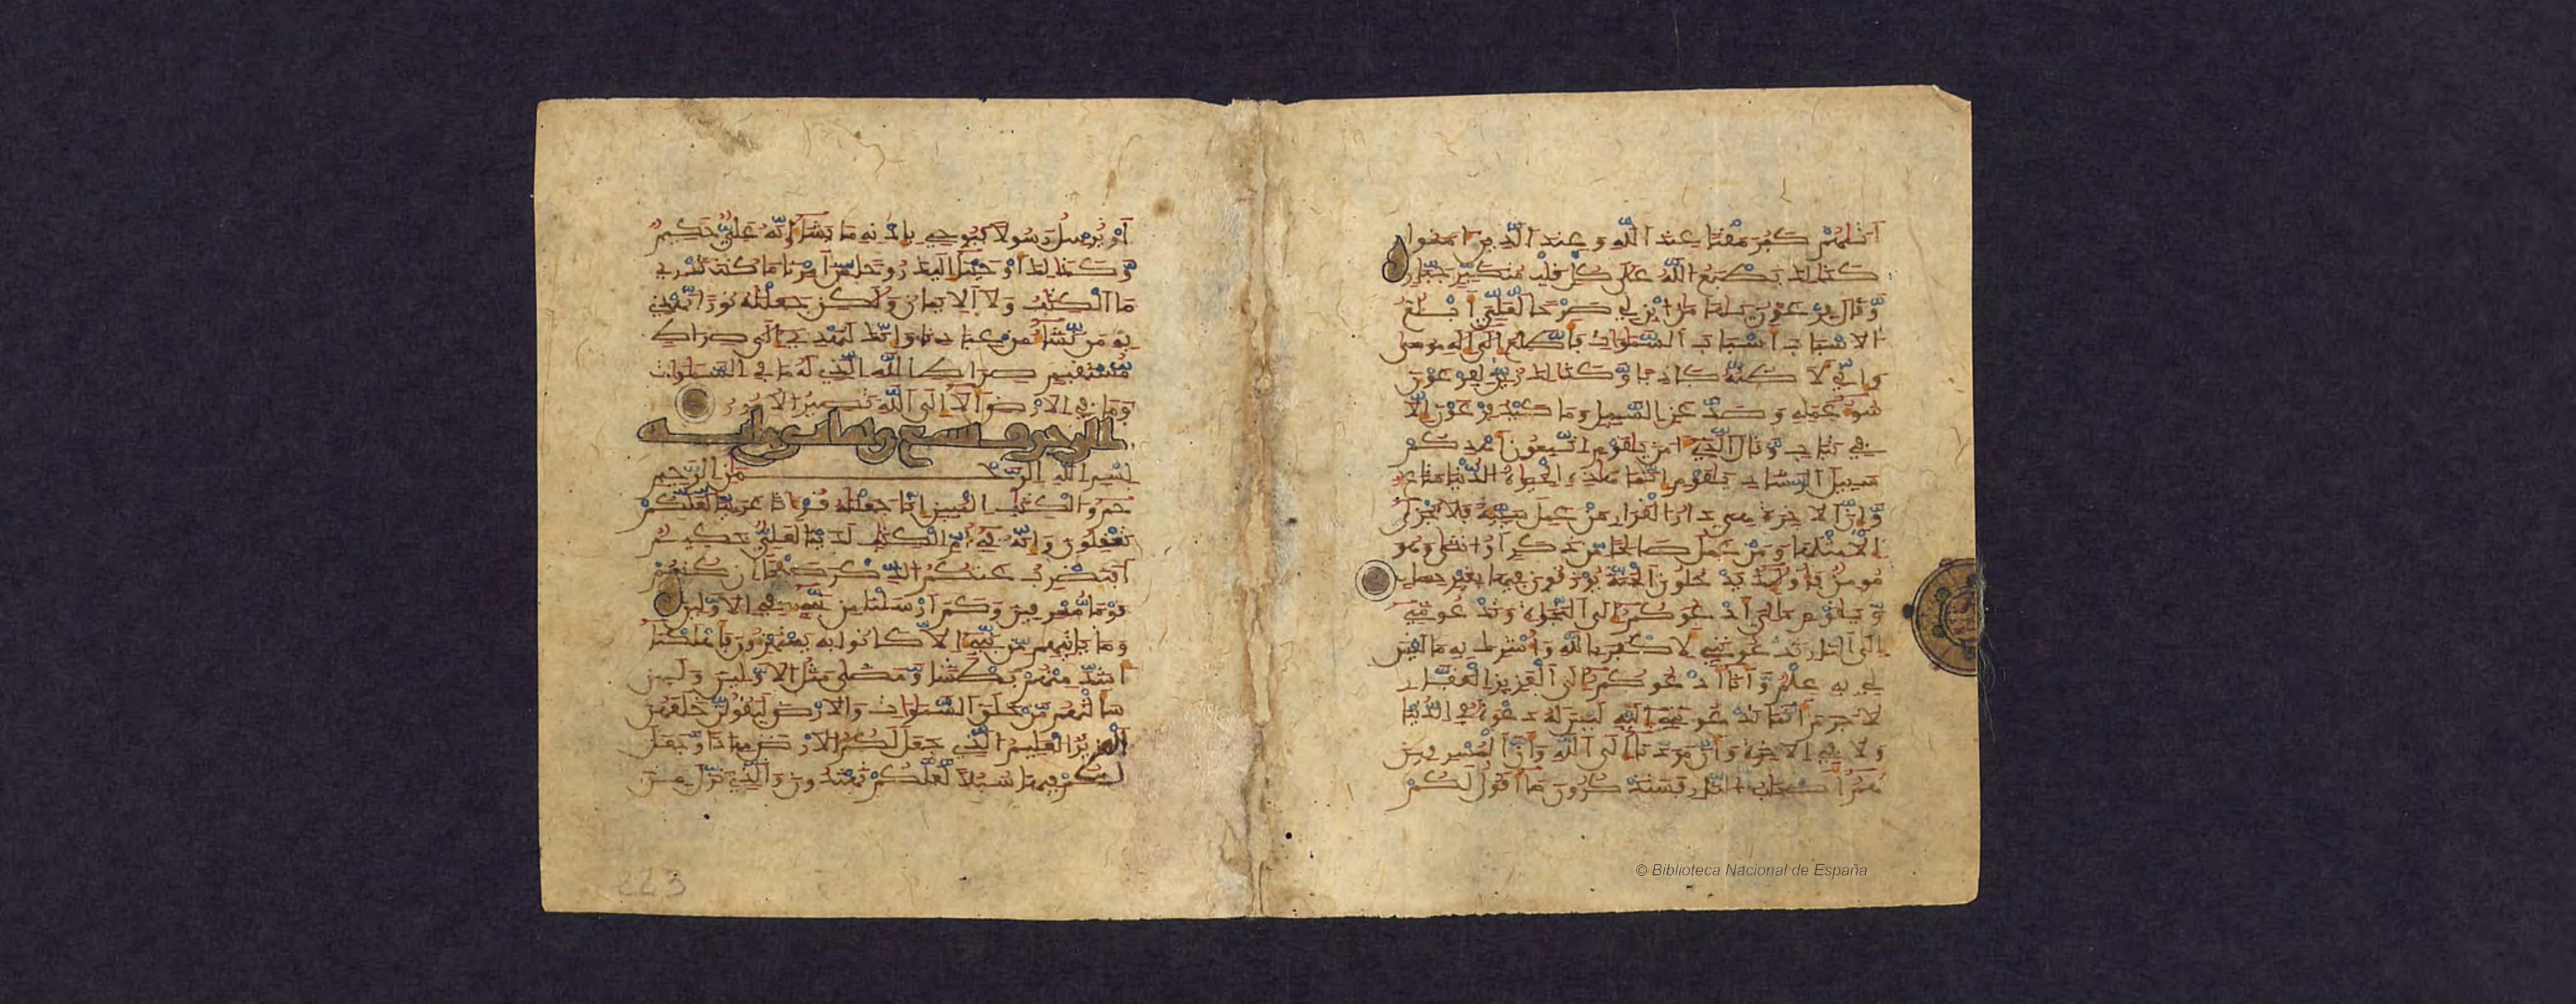 أتيهم كبر مقتا عند الله وعند الذين امنوا
كذلك يطبع الله على كل قلب متكبر جبار
وقال فرعون يهامان ابن لي صرحا لعلي أبلغ
الاسباب أسباب السموات فأطلع إلى إله موسى
وإني لأظنه كاذبا وكذلك زين لفرعون
سوء عمله وصد عن السبيل وما كيد فرعون إلا
في تباب وقال الذي امن يقوم اتبعون أهدكم
سبيل الرشاد يقوم إنما هذه الحيوة الدنيا متاع
وإن الاخرة هي دار القرار من عمل سيئة فلا يجزى
إلا مثلها ومن عمل صالحا من ذكر أو انثى وهو
مومن فأولئك يدخلون الجنة يرزقون فيها بغير حساب
ويقوم ما لي أدعوكم إلى النجوة وتدعونني
إلى النار تدعونني لأكفر بالله وأشرك به ما ليس
لي به علم وأنا أدعوكم إلى العزيز الغفار
لا جرم أنما تدعونني إليه ليس له دعوة في الدنيا
ولا في الاخرة وأن مردنا إلى الله وأن المسرفين
هم أصحاب النار فستذكرون ما أقول لكم
أو يرسل رسولا فيوحي بإذنه ما يشاء إنه علي حكيم
وكذلك أوحينا إليك روحا من أمرنا ما كنت تدري
ما الكتب ولا الايمان ولكن جعلنه نورا نهدي
به من نشاء من عبادنا وإنك لتهدي إلى صراط
مستقيم صراط الله الذي له ما في السموات
وما في الارض ألا إلى الله تصير الامور
الزخرف تسع وثمانون اية
بسم الله الرحمن الرحيم
حم والكتب المبين إنا جعلنه قرءانا عربيا لعلكم
تعقلون وإنه في أم الكتب لدينا لعلي حكيم
أفنضرب عنكم الذكر صفحا إن كنتم
قوما مسرفين وكم أرسلنا من نبيء في الاولين
وما ياتيهم من نبيء إلا كانوا به يستهزءون فأهلكنا
أشد منهم بطشا ومضى مثل الاولين ولئن
سألتهم من خلق السموات والارض ليقولن خلقهن
العزيز العليم الذي جعل لكم الارض مهادا وجعل
لكم فيها سبلا لعلكم تهتدون والذي نزل من
223
© Biblioteca Nacional de España